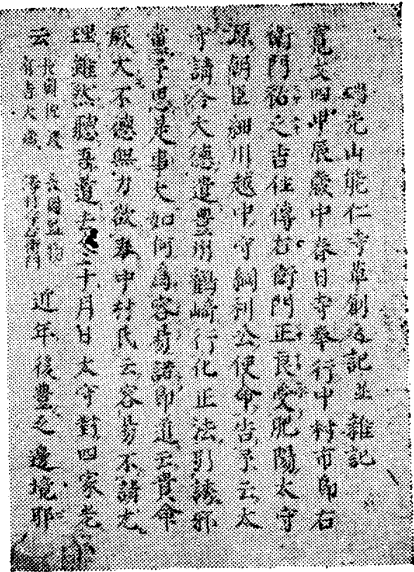 瑞光山能仁寺草創之記並雜記
寛文四甲辰歳中春日寺奉行中村市郎右
衛門祐之吉住傳右衛門正良受肥陽太守
源朝臣細川越中守綱利公使命告予云太
守請今大德遣豊州鶴崎行化正法引誘邪
黨予思是事大如何為容易諾即道云貴命
厥大不德無力欲中村氏云容易不諾尤
理雖然聽吾道去三十月日太守對四家老
云 長岡監物 近年後豊之邊境耶